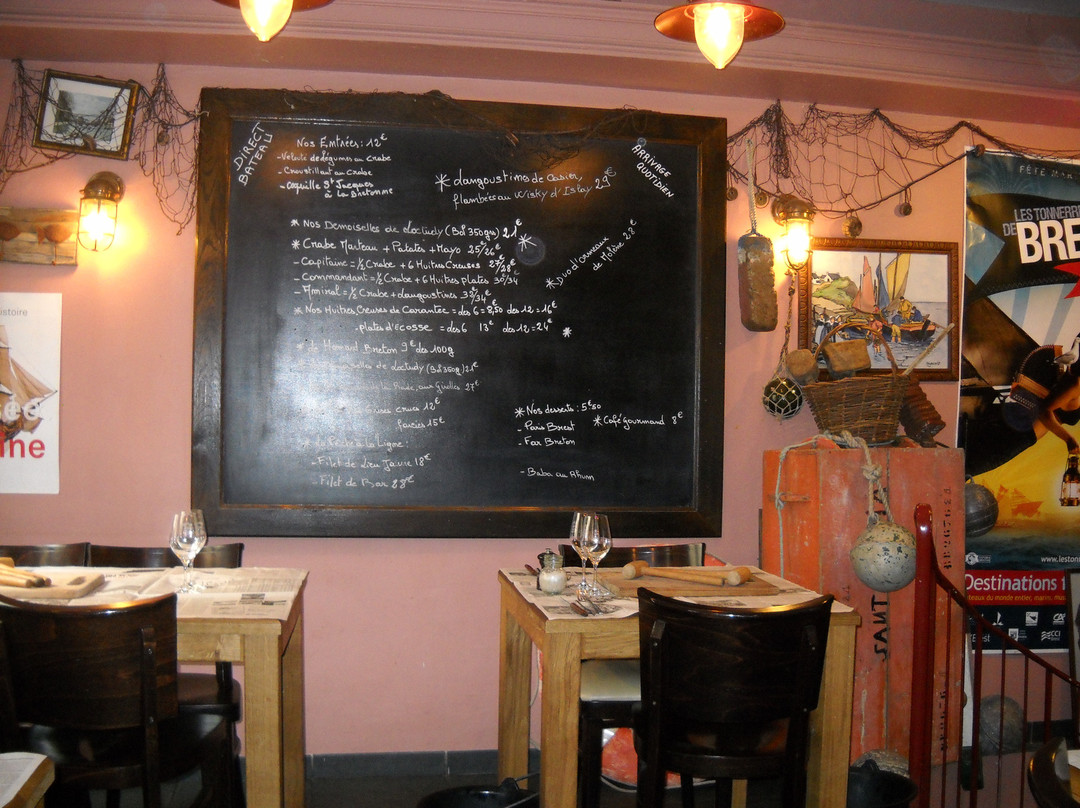 DIRECT
BATEAU
Nos Entrées : 12€
- Velouté de légumes au Crabe
- Croustillant au Crabe
- Coquille St Jacques
à la Bretonne
* Langoustines de Casier,
flambées au Wisky d'Islay 29€
ARRIVAGE
QUOTIDIEN
* Nos Demoiselles de Loctudy (Bol 350grs) 21€
* Crabe Marteau + Patates + Mayo 25€/26€
- Capitaine = ½ Crabe + 6 Huitres Creuses 27€/28€
- Commandant = ½ Crabe + 6 Huitres plates 30/34€
- Amiral = ½ Crabe + Langoustines 32/34€
* Duo d'ormeaux
de Molène 28€
* Nos Huitres Creuses de Carantec = des 6 = 8,50 des 12 = 16€
plates d'écosse = des 6 13€ des 12 = 24€ *
* Le Homard Breton 9€ des 100g
de Loctudy (Bol 350g) 21€
27€
crues 12€
farcies 15€
* La Pêche à la Ligne :
- Filet de Lieu Jaune 18€
- Filet de Bar 28€
* Nos desserts : 5€50
- Paris Brest
- Far Breton
- Baba au Rhum
* Café Gourmand 8€
istoire
ine
FÊTE MAR
LES TONNERR
DE BRE
www.leston
Destinations
CCI
SANT